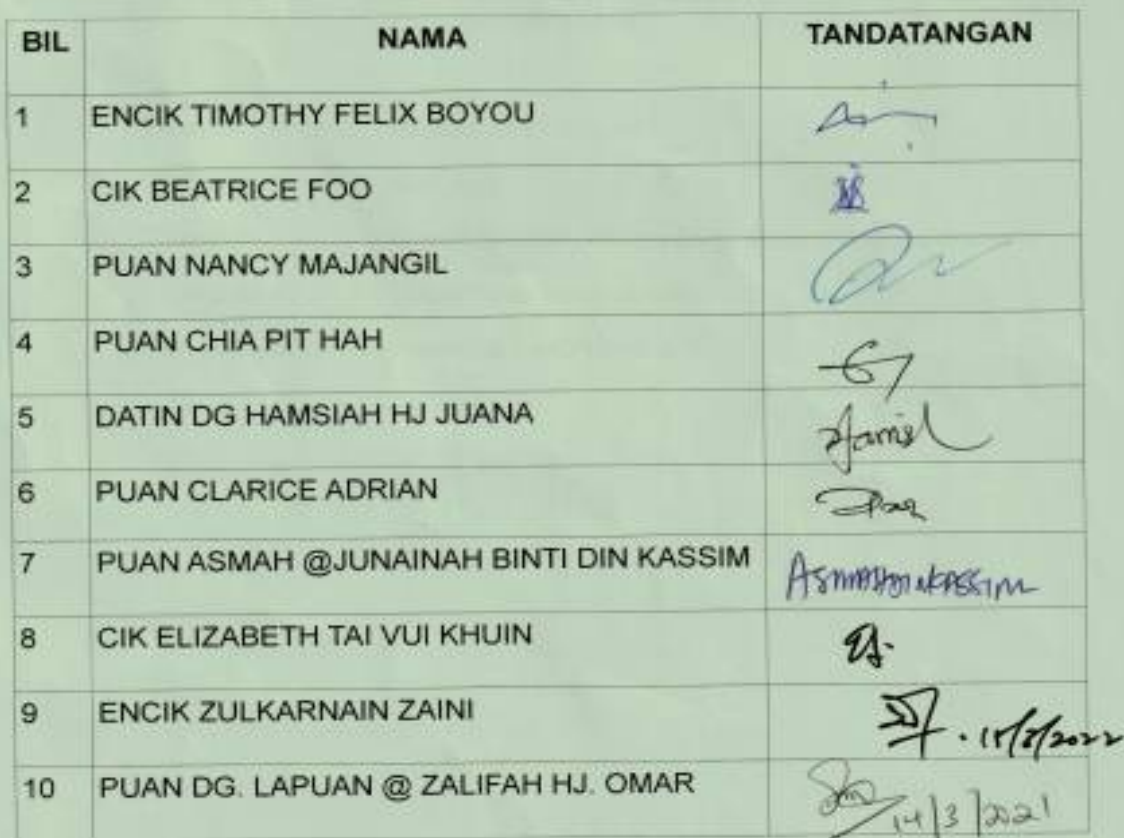 BIL NAMA TANDATANGAN
1 ENCIK TIMOTHY FELIX BOYOU
2 CIK BEATRICE FOO
3 PUAN NANCY MAJANGIL
4 PUAN CHIA PIT HAH
5 DATIN DG HAMSIAH HJ JUANA
6 PUAN CLARICE ADRIAN
7 PUAN ASMAH @JUNAINAH BINTI DIN KASSIM ASMAHDINKASSIM
8 CIK ELIZABETH TAI VUI KHUIN
9 ENCIK ZULKARNAIN ZAINI
10 PUAN DG. LAPUAN @ ZALIFAH HJ. OMAR 14/3/2021